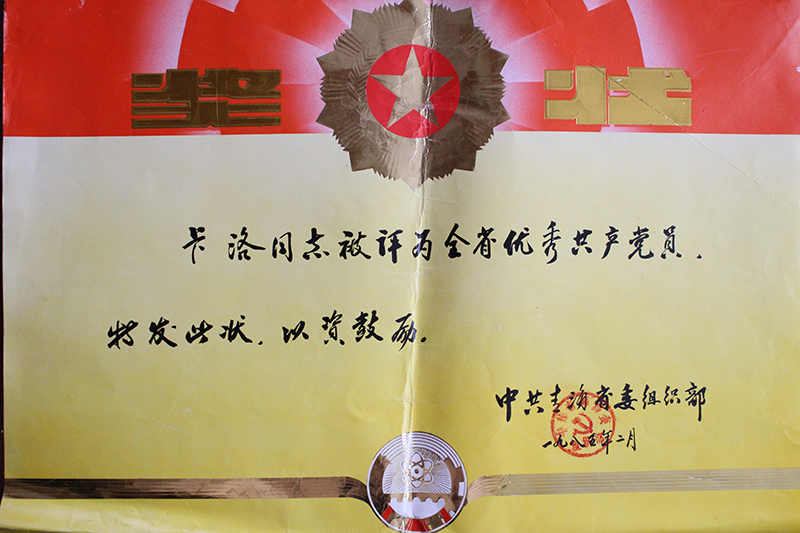 奖状
卡洛同志被评为全省优秀共产党员，
特发此状，以资鼓励。
中共青海省委组织部
一九八五年二月